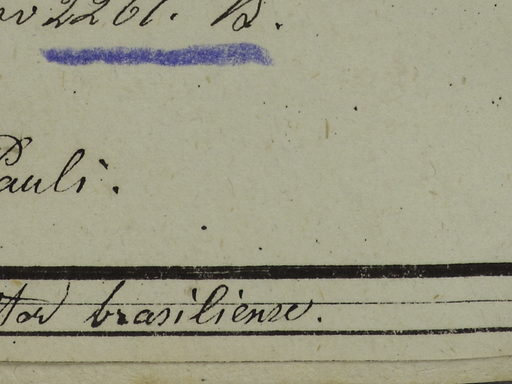 2261. B.
Pauli.
brasiliense.